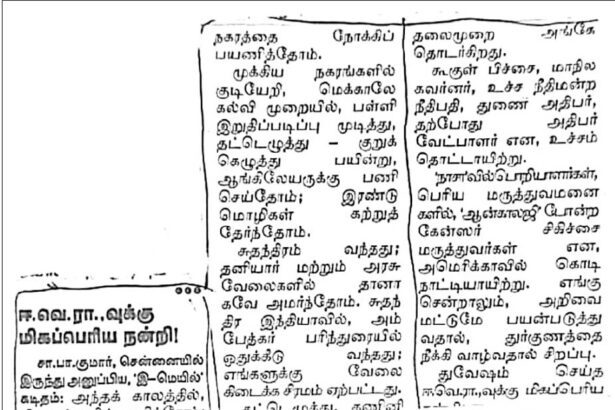 ஈ.வெ.ரா.,வுக்கு
மிகப்பெரிய நன்றி!
சா.பா.குமார், சென்னையில்
இருந்து அனுப்பிய, 'இ–மெயில்'
கடிதம்: அந்தக் காலத்தில்,
நகரத்தை நோக்கிப்
பயணித்தோம்.
முக்கிய நகரங்களில்
குடியேறி, மெக்காலே
கல்வி முறையில், பள்ளி
இறுதிப்படிப்பு முடித்து,
தட்டெழுத்து – குறுக்
கெழுத்து பயின்று,
ஆங்கிலேயருக்கு பணி
செய்தோம்; இரண்டு
மொழிகள் கற்றுத்
தேர்ந்தோம்.
சுதந்திரம் வந்தது;
தனியார் மற்றும் அரசு
வேலைகளில் தானா
கவே அமர்ந்தோம். சுதந்
திர இந்தியாவில், அம்
பேத்கர் பரிந்துரையில்
ஒதுக்கீடு வந்தது;
எங்களுக்கு வேலை
கிடைக்க சிரமம் ஏற்பட்டது.
தலைமுறை அங்கே
தொடர்கிறது.
கூகுள் பிச்சை, மாநில
கவர்னர், உச்ச நீதிமன்ற
நீதிபதி, துணை அதிபர்,
தற்போது அதிபர்
வேட்பாளர் என, உச்சம்
தொட்டாயிற்று.
'நாசா'வில்பொறியாளர்கள்,
பெரிய மருத்துவமனை
களில், 'ஆன்காலஜி' போன்ற
கேன்ஸர் சிகிச்சை
மருத்துவர்கள் என,
அமெரிக்காவில் கொடி
நாட்டியாயிற்று. எங்கு
சென்றாலும், அறிவை
மட்டுமே பயன்படுத்து
வதால், துர்குணத்தை
நீக்கி வாழ்வதால் சிறப்பு.
துவேஷம் செய்த
ஈ.வெ.ரா.,வுக்கு மிகப்பெரிய